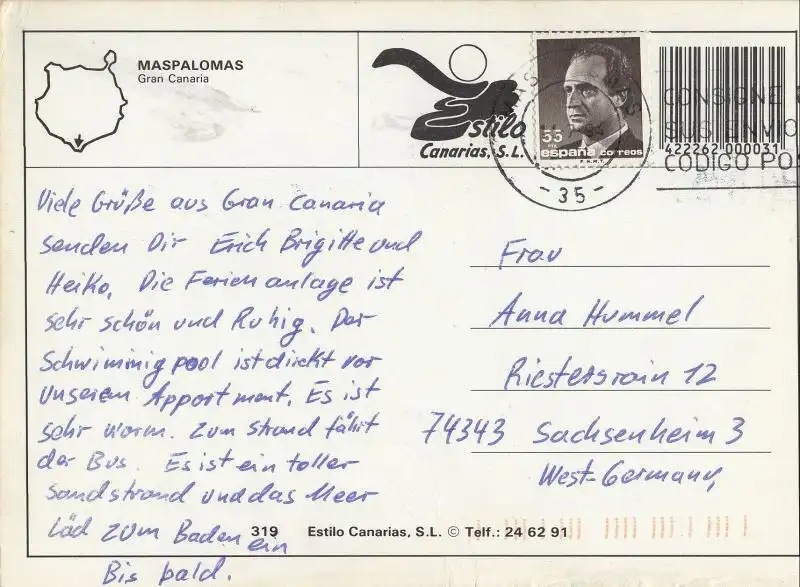 MASPALOMAS
Gran Canaria
Estilo
Canarias, S.L.
55
PTA
españa correos
F.N.M.T.
- 35 -
CONSIGNE
SUS ENVIO
CODIGO PO
422262 000031
Viele Grüße aus Gran Canaria
senden Dir Erich Brigitte und
Heiko. Die Ferienanlage ist
sehr schön und Ruhig. Der
Schwimmigpool ist direkt vor
unserem Appartment. Es ist
sehr warm. Zum Strand fährt
der Bus. Es ist ein toller
Sandstrand und das Meer
läd zum Baden ein
Bis bald.
Frau
Anna Hummel
12
74343 Sachsenheim 3
West-Germany
319 Estilo Canarias, S.L. © Telf.: 24 62 91